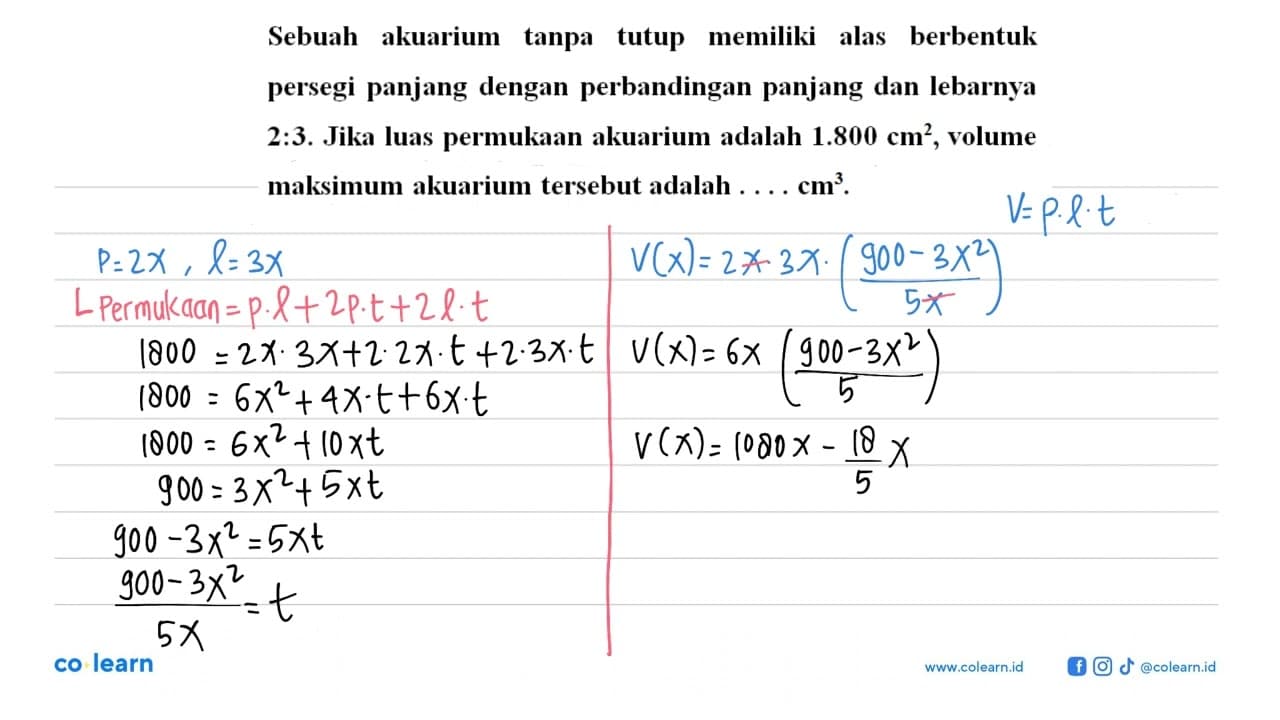 Sebuah akuarium tanpa tutup memiliki alas berbentuk
persegi panjang dengan perbandingan panjang dan lebarnya
2:3. Jika luas permukaan akuarium adalah 1.800 cm², volume
maksimum akuarium tersebut adalah . . . . cm³.
V= p.l.t
P=2x , l=3x
L Permukaan = p.l+2p.t+2l.t
1800 = 2x.3x+2.2x.t+2.3x.t
1800 = 6x²+4x.t+6x.t
1800 = 6x²+10xt
900 = 3x²+5xt
900-3x² = 5xt
(900-3x²)/5x = t
V(x)= 2x.3x.((900-3x²)/5x)
V(x)= 6x ((900-3x²)/5)
V(x)= 1080x - 18/5 x
co learn
www.colearn.id
@colearn.id